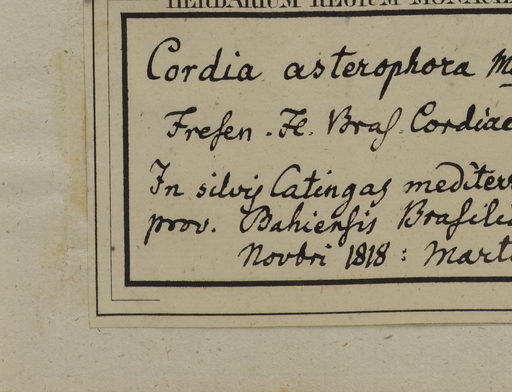 HERBARIUM REGIUM MONACE
Cordia asterophora M
Fresen. Fl. Bras. Cordiace
In silvis Catingas mediterr
prov. Bahiensis Brasilia
Novbri 1818: Mart